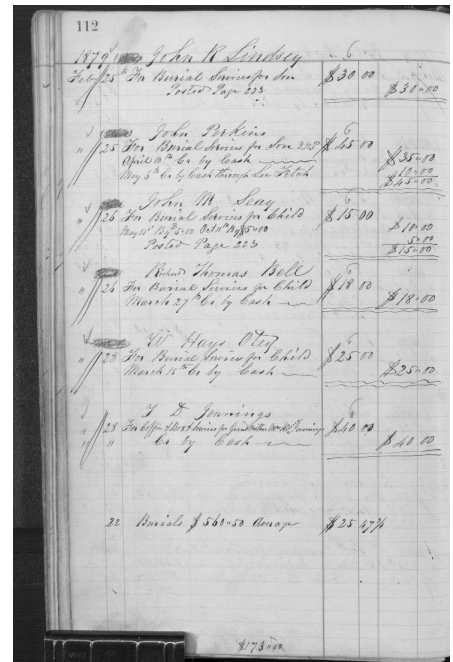 112
1879 John R Lindsey 6
Feb 25th For Burial Services for Son $30 00
Posted Page 223 $30"00
John Perkins 6
" 25 For Burial Services for Son $45 00
April 10th Cr by Cash $35"00
May 6th Cr by Cash through Lee Fitch 10"00
$45"00
John M. Seay 6
" 26 For Burial Services for Child $15 00
May 21st By $5"00 Oct 11th By $5"00 $10"00
Posted Page 223 5"00
$15"00
Richard Thomas Bell 6
" 26 For Burial Services for Child $18 00
March 27th Cr by Cash $18"00
W Hays Otey 6
" 28 For Burial Services for Child $25 00
March 15th Cr by Cash $25"00
J D Jennings 6
" 28 For Coffin & Box & Services for Grandmother Mrs Jennings $40 00
" " Cr by Cash $40 00
22 Burials $560"50 Average $25 47¾
$173"00